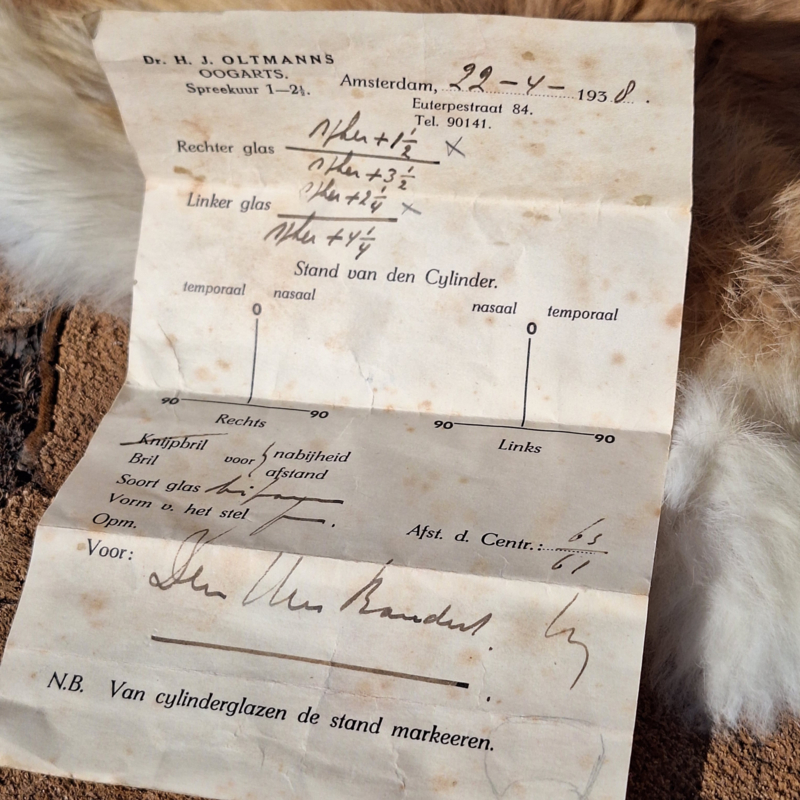 Dr. H. J. OLTMANNS
OOGARTS.
Spreekuur 1—2½.
Amsterdam, 22-4-1938.
Euterpestraat 84.
Tel. 90141.
Rechter glas spher +1 1/2 x
spher +3 1/2
Linker glas spher +2 1/4 x
spher +4 1/4
Stand van den Cylinder.
temporaal 0 nasaal
nasaal 0 temporaal
90 90
Rechts
90 90
Links
Knijpbril
Bril voor nabijheid
afstand
Soort glas
Vorm v. het stel
Opm.
Afst. d. Centr.: 63
61
Voor: Den Heer
N.B. Van cylinderglazen de stand markeeren.